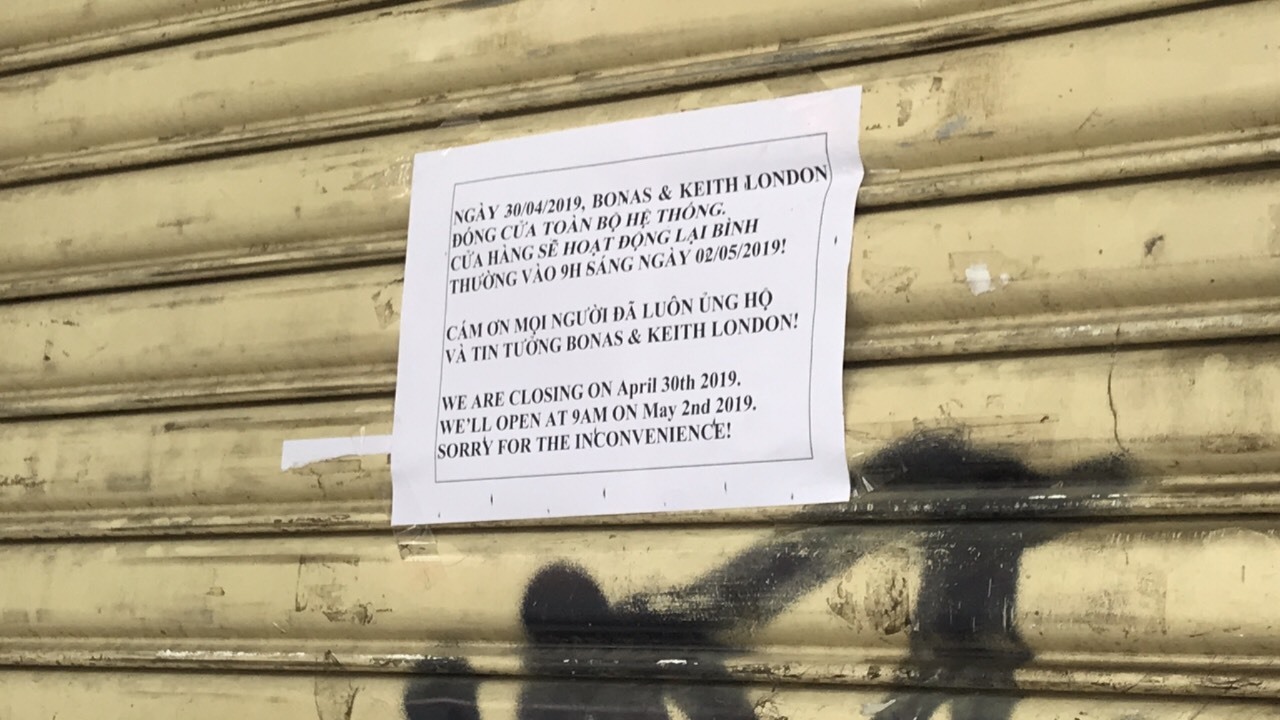 NGÀY 30/04/2019, BONAS & KEITH LONDON
ĐÓNG CỬA TOÀN BỘ HỆ THỐNG.
CỬA HÀNG SẼ HOẠT ĐỘNG LẠI BÌNH
THƯỜNG VÀO 9H SÁNG NGÀY 02/05/2019!
CÁM ƠN MỌI NGƯỜI ĐÃ LUÔN ỦNG HỘ
VÀ TIN TƯỞNG BONAS & KEITH LONDON!
WE ARE CLOSING ON April 30th 2019.
WE'LL OPEN AT 9AM ON May 2nd 2019.
SORRY FOR THE INCONVENIENCE!